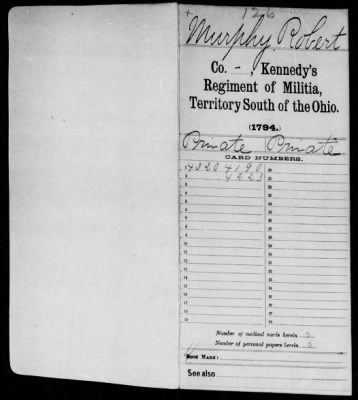 126
Murphy, Robert
Co. - , Kennedy's
Regiment of Militia,
Territory South of the Ohio.
(1794.)
Private Private
CARD NUMBERS.
1 40204190
2 4223
Number of medical cards herein 0
Number of personal papers herein 0
BOOK MARK:
See also